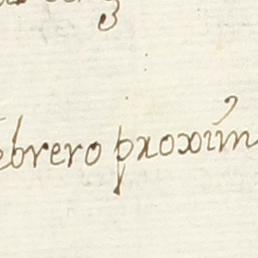 ebrero proxim